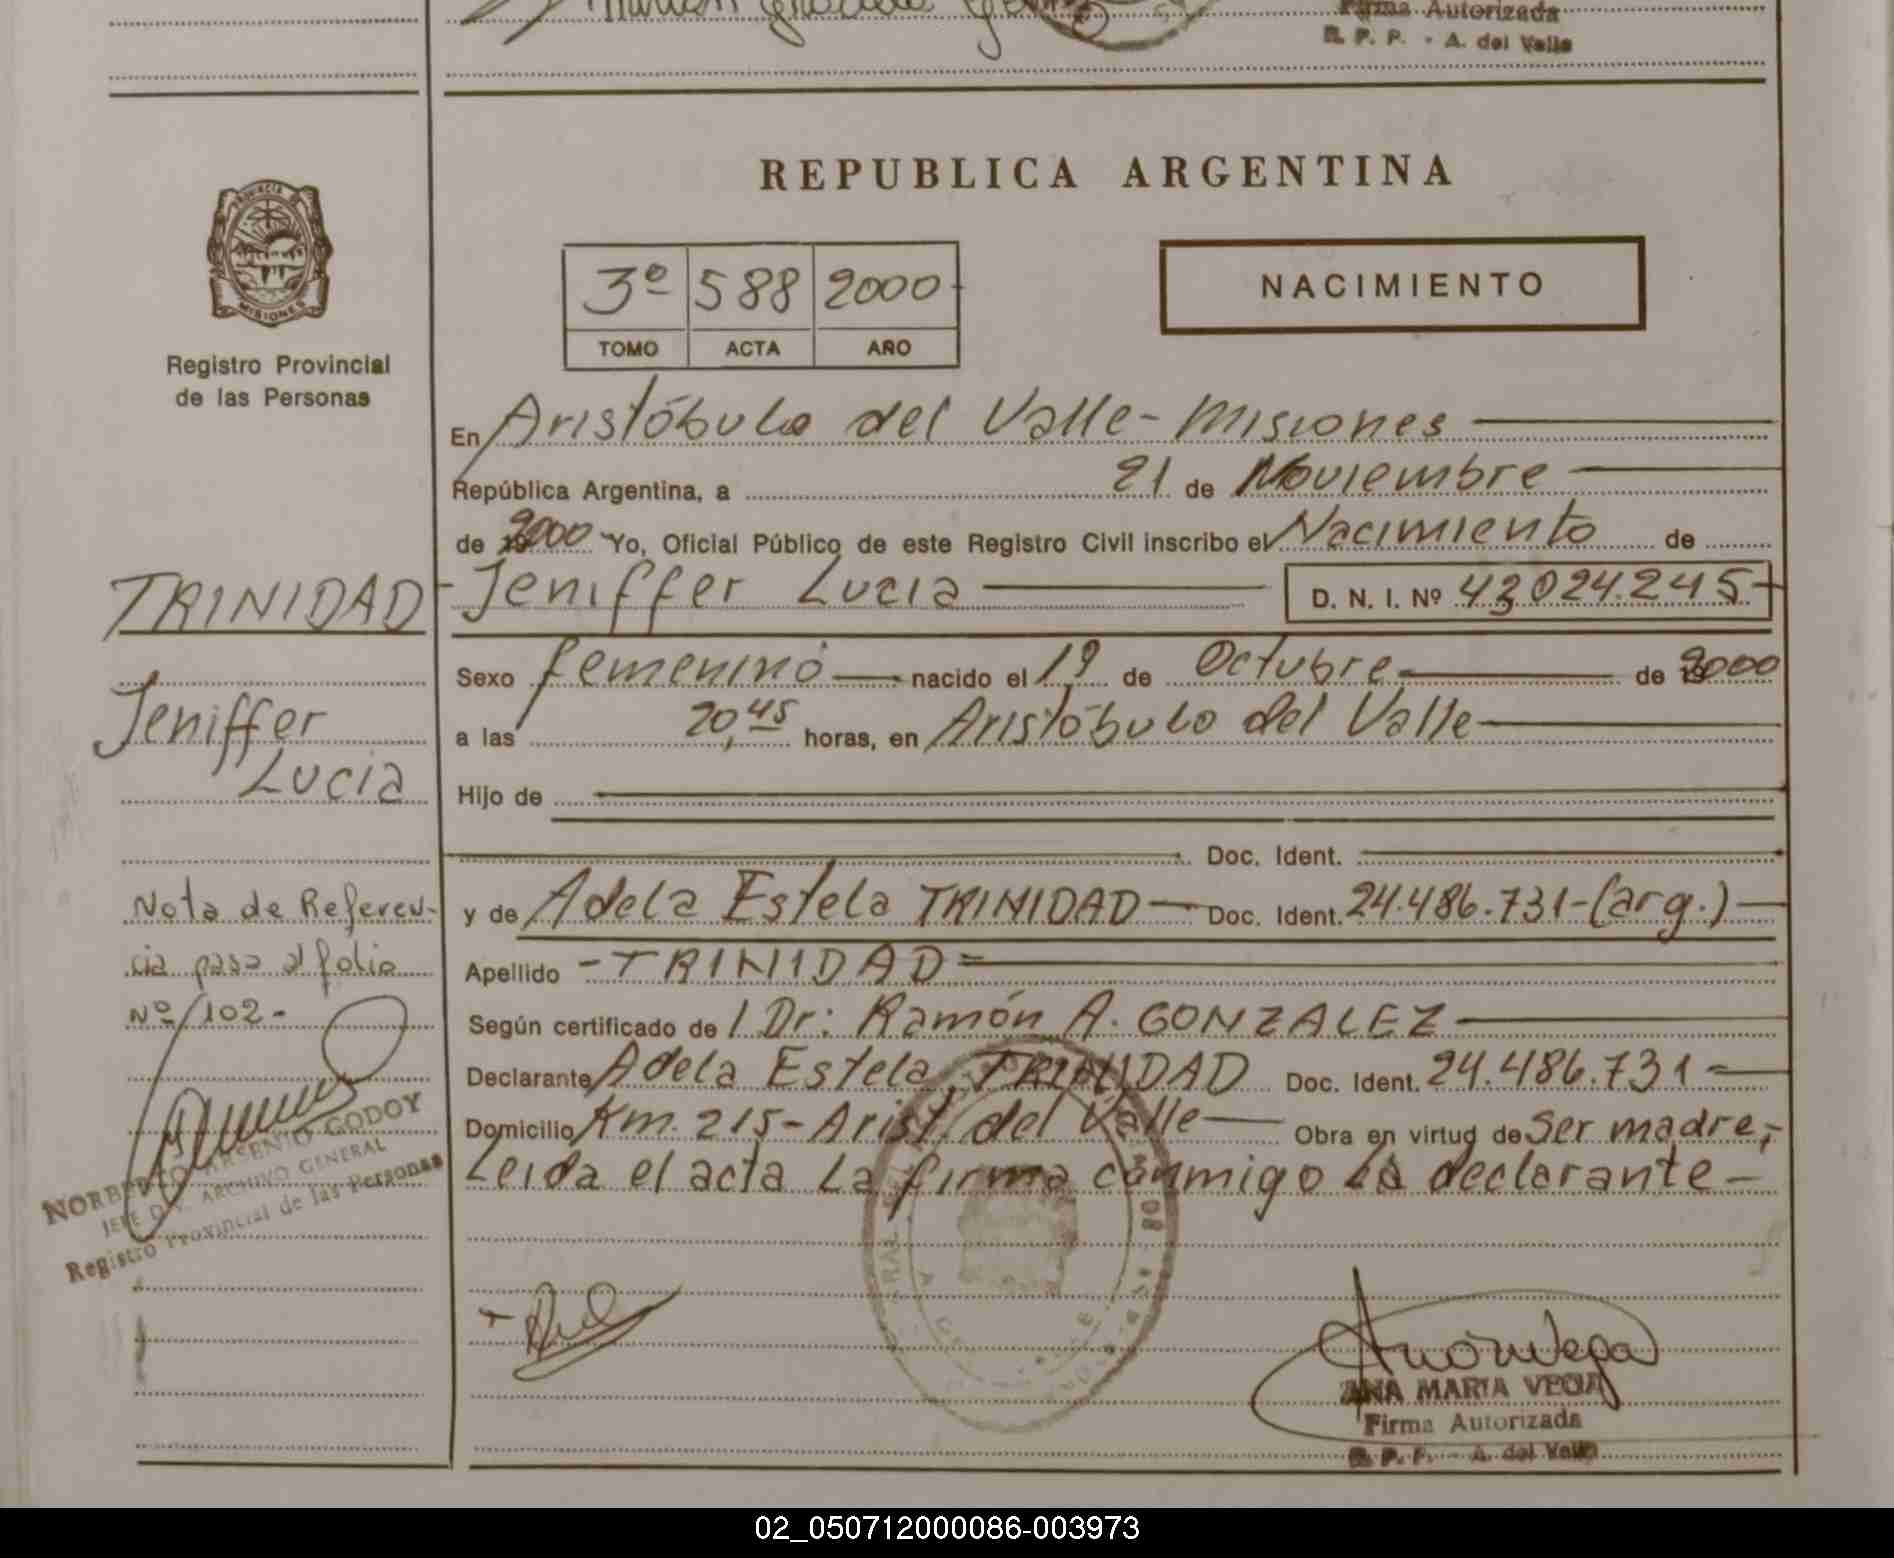 Firma Autorizada
R. P. P. - A. del Valle
REPUBLICA ARGENTINA
PROVINCIA
MISIONES
3º 588 2000
TOMO ACTA AÑO
NACIMIENTO
Registro Provincial
de las Personas
En Aristóbulo del Valle - Misiones
República Argentina, a 21 de Noviembre
de 2000 Yo, Oficial Público de este Registro Civil inscribo el Nacimiento de
TRINIDAD
Jeniffer Lucia D. N. I. Nº 43.024.245
Sexo femenino nacido el 19 de Octubre de 2000
Jeniffer
Lucia
a las 20,45 horas, en Aristóbulo del Valle
Hijo de
Doc. Ident.
Nota de Referen-
cia pasa al folio
Nº 102-
y de Adela Estela TRINIDAD Doc. Ident. 24.486.731-(arg.)
Apellido - TRINIDAD =
Según certificado de Dr: Ramón A. GONZALEZ
Declarante Adela Estela TRINIDAD Doc. Ident. 24.486.731
Domicilio Km. 215 - Arist. del Valle Obra en virtud de Ser madre,
Leida el acta La firma conmigo La declarante
NORBERTO ARSENIO GODOY
JEFE DIV. ARCHIVO GENERAL
Registro Provincial de las Personas
ANA MARIA VEGA
Firma Autorizada
R. P. P. - A. del Valle
02_050712000086-003973